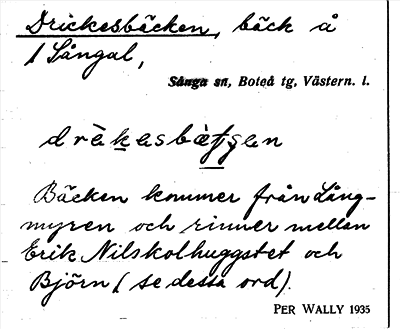 Drickesbäcken, bäck å
1 Sångal,
Sånga sn, Boteå tg, Västern. l.
drìkesbètsen
Bäcken kommer från Lång-
myren och rinner mellan
Erik Nilskolhuggstet och
Björn (se dessa ord).
PER WALLY 1935